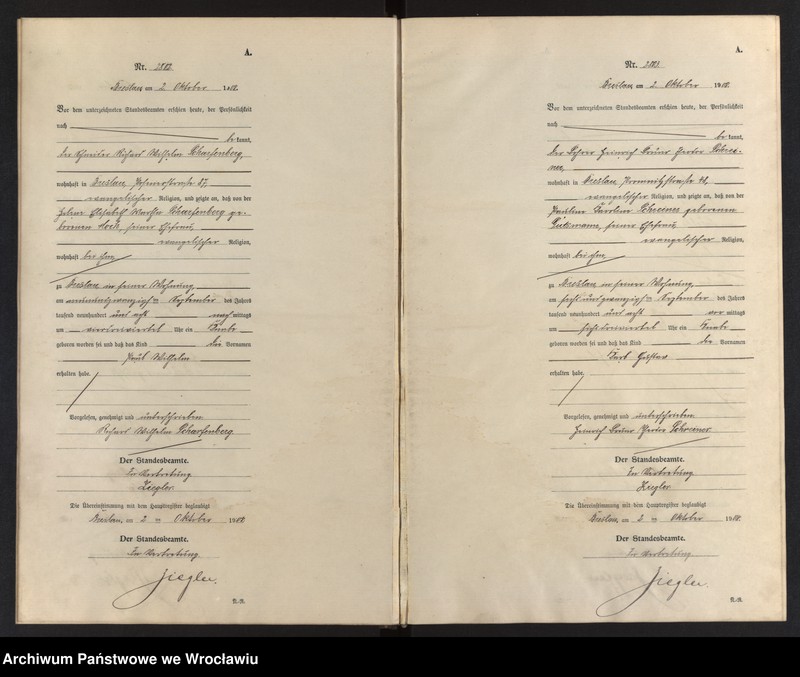 A.
Nr. 2882.
Breslau, am 2. Oktober 1908.
Vor dem unterzeichneten Standesbeamten erschien heute, der Persönlichkeit
nach
be kannt,
der Schneider Richard Wilhelm Scharfenberg,
wohnhaft in Breslau, 57,
evangelischer Religion, und zeigte an, daß von der
Elisabeth Martha Scharfenberg ge-
borenen Koch, seiner Ehefrau,
evangelischer Religion,
wohnhaft bei ihm
zu Breslau in seiner Wohnung
am September des Jahres
tausend neunhundert und acht nach mittags
um Uhr ein Knabe
geboren worden sei und daß das Kind die Vornamen
Paul Wilhelm
erhalten habe.
Vorgelesen, genehmigt und unterschrieben
Richard Wilhelm Scharfenberg
Der Standesbeamte.
In Vertretung
Ziegler.
Die Übereinstimmung mit dem Hauptregister beglaubigt
Breslau, am 2 ten Oktober 1908.
Der Standesbeamte.
In Vertretung
Ziegler.
A.
Nr. 2883.
Breslau, am 2. Oktober 1908.
Vor dem unterzeichneten Standesbeamten erschien heute, der Persönlichkeit
nach
be kannt,
der Heinrich Schrei-
ner,
wohnhaft in Breslau,
evangelischer Religion, und zeigte an, daß von der
Pauline Schreiner geborenen
seiner Ehefrau,
evangelischer Religion,
wohnhaft bei ihm
zu Breslau in seiner Wohnung
am sechsundzwanzigsten September des Jahres
tausend neunhundert und acht vor mittags
um Uhr ein Knabe
geboren worden sei und daß das Kind die Vornamen
Gustav
erhalten habe.
Vorgelesen, genehmigt und unterschrieben
Heinrich Schreiner
Der Standesbeamte.
In Vertretung
Ziegler
Die Übereinstimmung mit dem Hauptregister beglaubigt
Breslau, am 2 ten Oktober 1908.
Der Standesbeamte.
In Vertretung
Ziegler.
Archiwum Państwowe we Wrocławiu